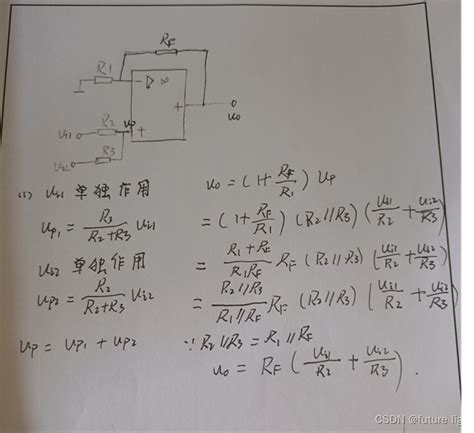 RF
R1
▷ ∞
−
+
uo
ui1 R2 up +
ui2 R3
(1) ui1 单独作用
up1 = R3/(R2+R3) ui1
ui2 单独作用
up2 = R2/(R2+R3) ui2
up = up1 + up2
uo = (1+RF/R1) up
= (1+RF/R1) (R2//R3) (ui1/R2 + ui2/R3)
= (R1+RF)/(R1RF) RF (R2//R3) (ui1/R2 + ui2/R3)
= (R2//R3)/(R1//RF) RF (R2//R3) (ui1/R2 + ui2/R3)
∵ R2//R3 = R1//RF
uo = RF (ui1/R2 + ui2/R3).
CSDN @future lig